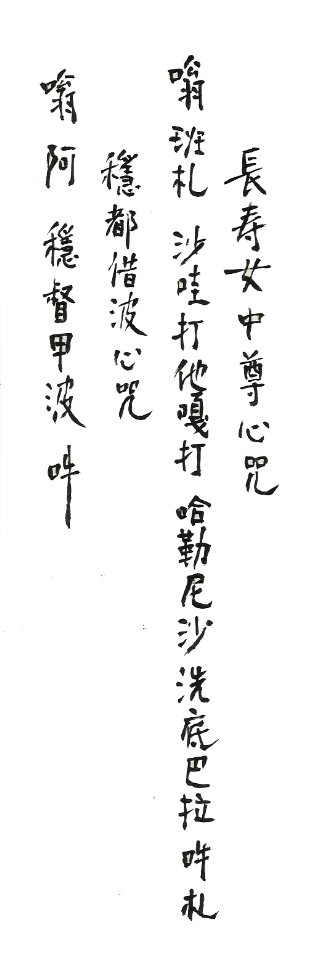 長寿女中尊心咒
嗡班札 沙哇打他嘎打 哈勒尼沙洗底巴拉吽札
穩都借波心咒
嗡阿 穩督甲波吽